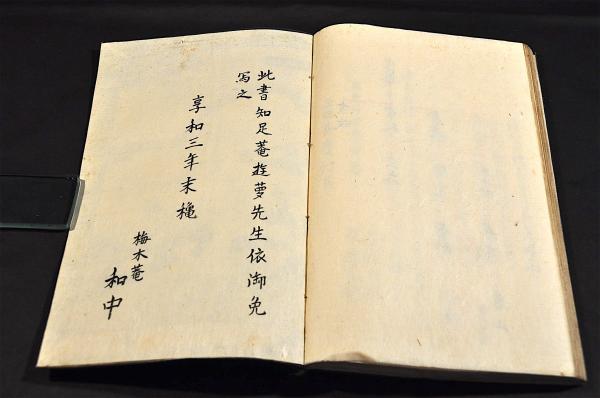 此書知足菴遊夢先生依御免
写之
享和三年末穐
梅木菴
和中